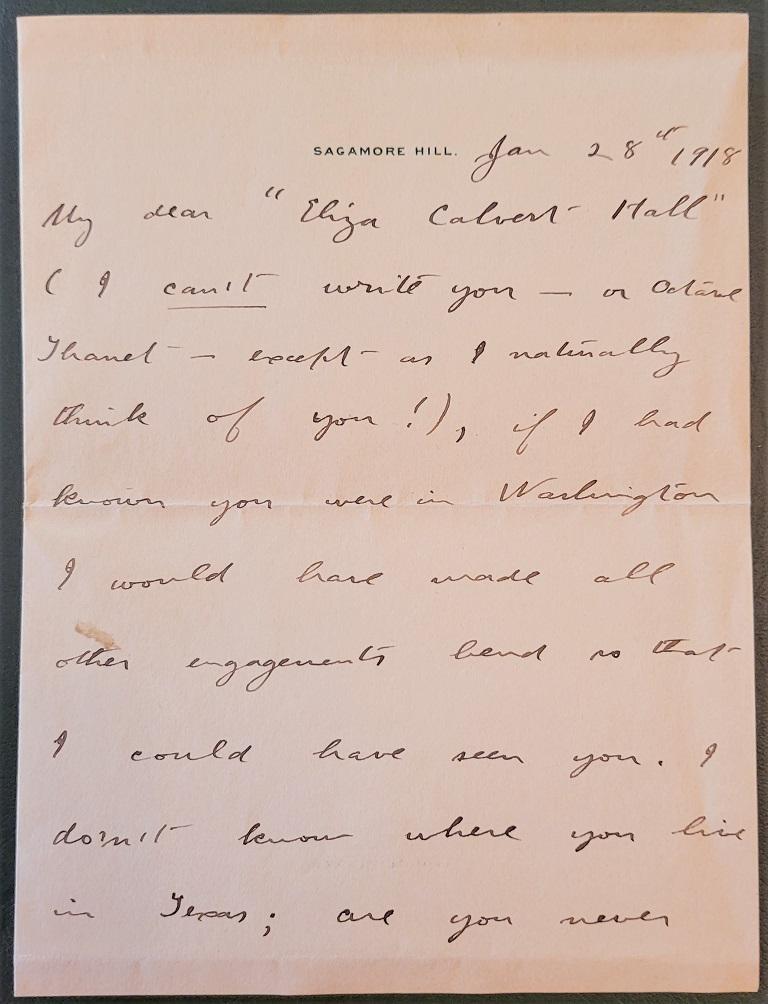 SAGAMORE HILL. Jan 28th 1918
My dear "Eliza Calvert Hall"
( I can't write you — or Octave
Thanet — except as I naturally
think of you!), if I had
known you were in Washington
I would have made all
other engagements bend so that
I could have seen you. I
don't know where you live
in Texas; are you never